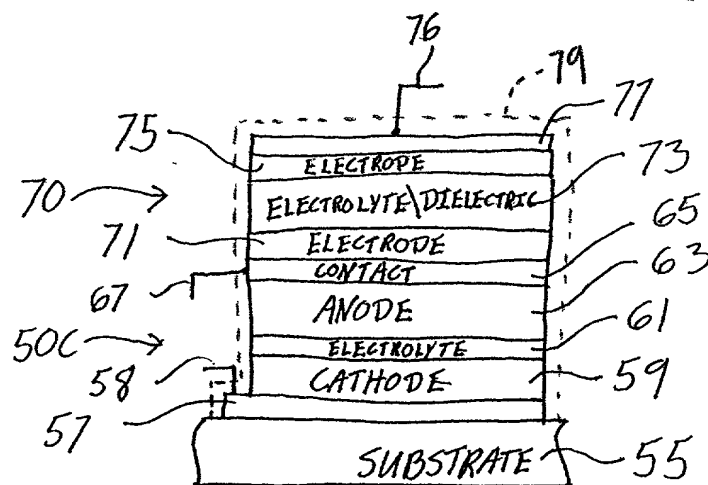 76
79
77
75 ELECTRODE
70 ELECTROLYTE\DIELECTRIC 73
71 ELECTRODE 65
CONTACT 63
67 ANODE
61
50C ELECTROLYTE
58 CATHODE 59
57
SUBSTRATE 55